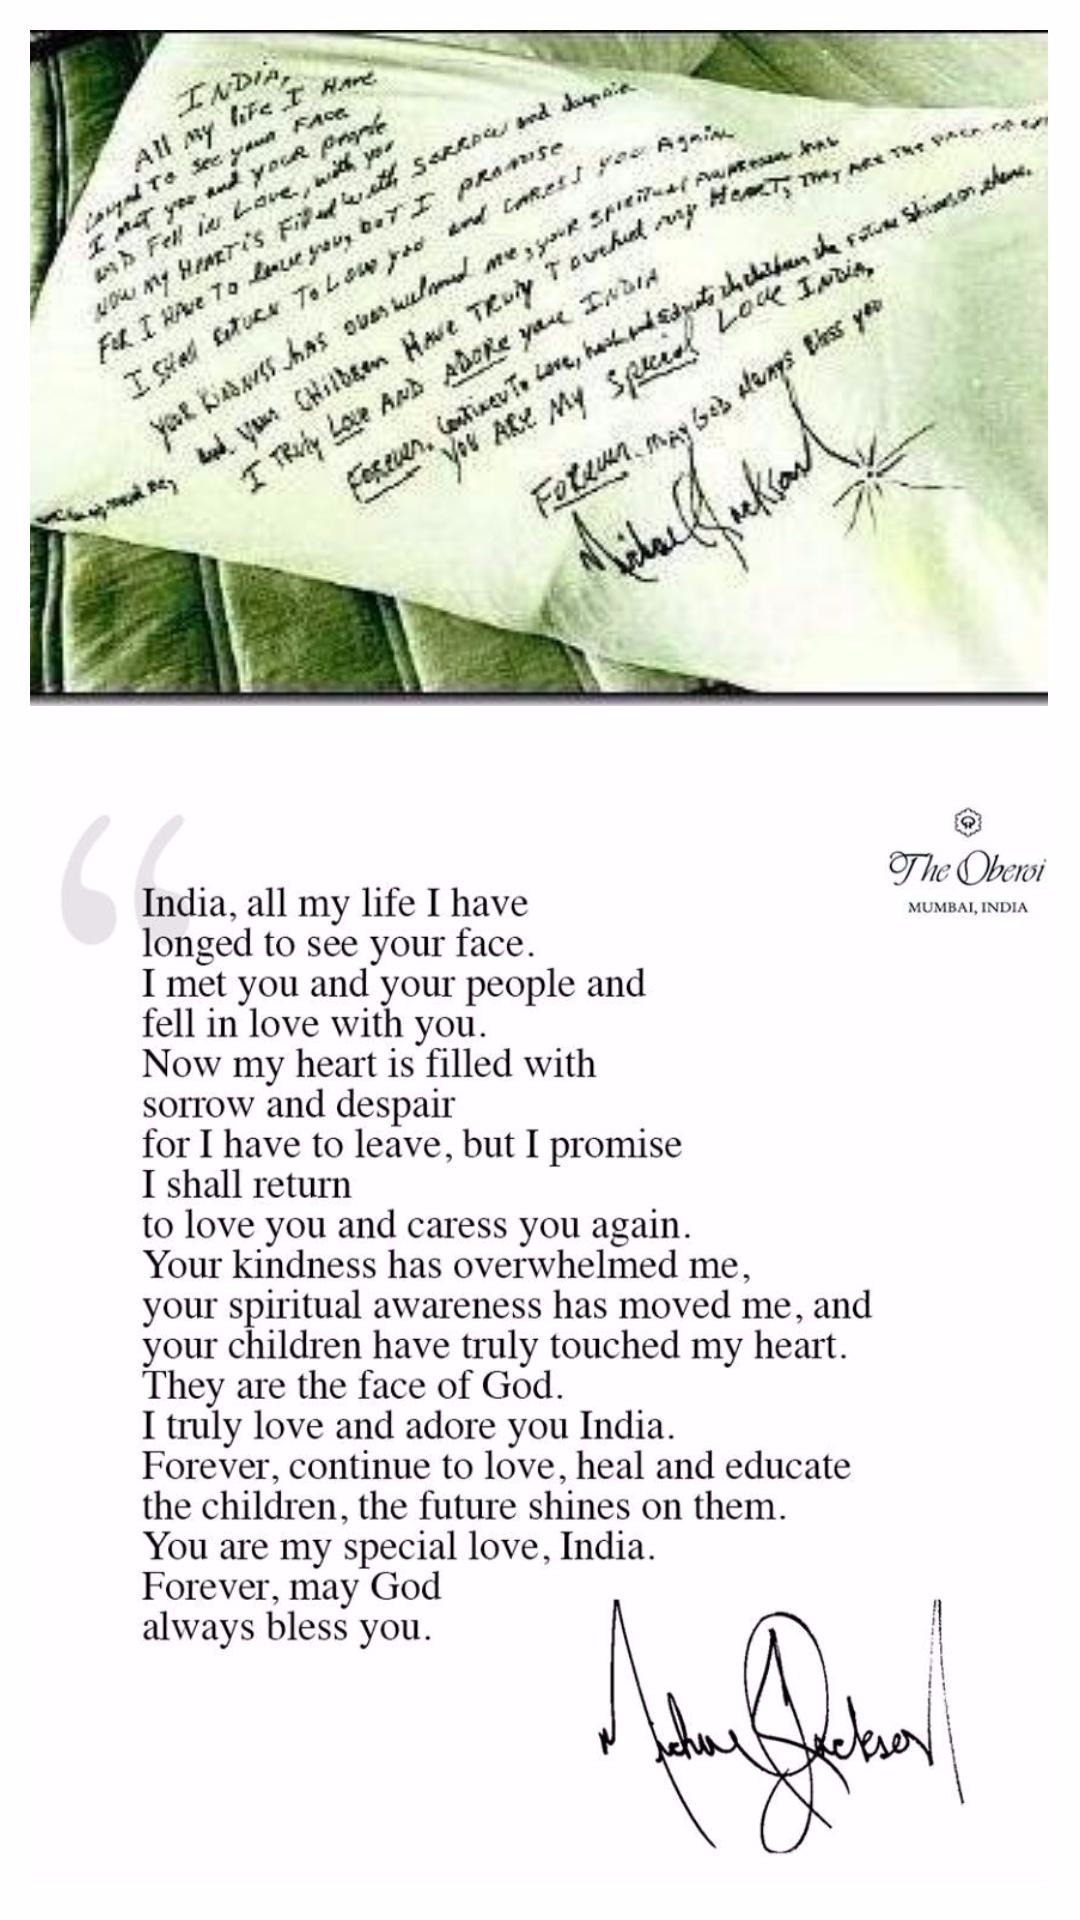 INDIA,
All my life I HAVE
longed To see your FACE
I met you and your people
and Fell in Love, with you
Now my HEART is Filled with SORROW and despair
FOR I HAVE TO leave you, but I PROMISE
I SHALL RETURN To Love you and CARESS you Again
your KINDNESS has overwhelmed me, your spiritual Awareness has
and your CHILDREN HAVE TRULY Touched my HEART, They ARE The FACE OF
I TRULY Love AND ADORE you INDIA
Forever, Continue To Love, heal and educate the children the future shines on them.
you ARE My Special LOVE INDIA,
Forever. MAY GOD Always Bless you
Michael Jackson
The Oberoi
MUMBAI, INDIA
“
India, all my life I have
longed to see your face.
I met you and your people and
fell in love with you.
Now my heart is filled with
sorrow and despair
for I have to leave, but I promise
I shall return
to love you and caress you again.
Your kindness has overwhelmed me,
your spiritual awareness has moved me, and
your children have truly touched my heart.
They are the face of God.
I truly love and adore you India.
Forever, continue to love, heal and educate
the children, the future shines on them.
You are my special love, India.
Forever, may God
always bless you.
Michael Jackson